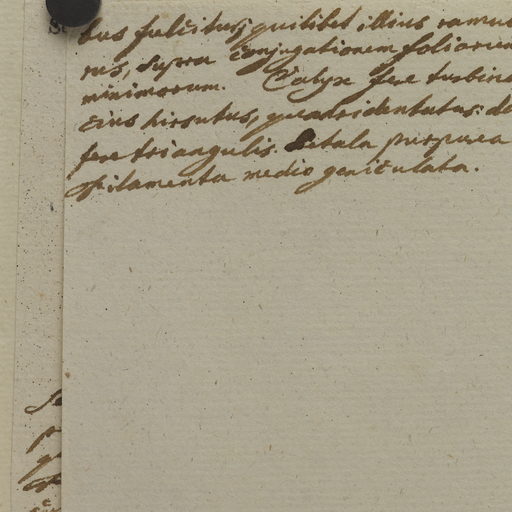 tus fulcitus; quilibet illius ramu
rus, supra conjugationem foliorum
minimorum. Calyx fere turbina
cius hirsutus, quadridentatus: de
fere triangulis. Petala purpurea
Filamenta medio geniculata.